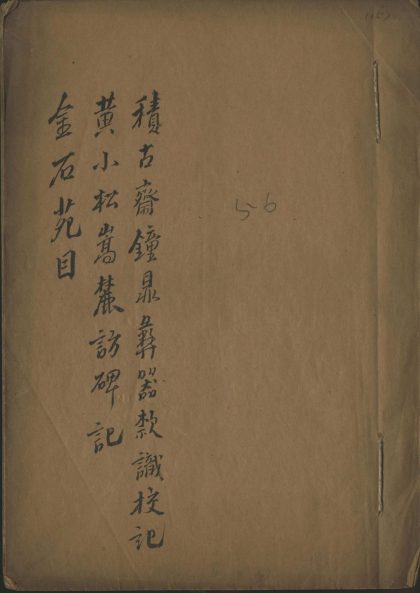 積古齋鐘鼎彝器款識校記
黃小松嵩麓訪碑記
金石苑目
56